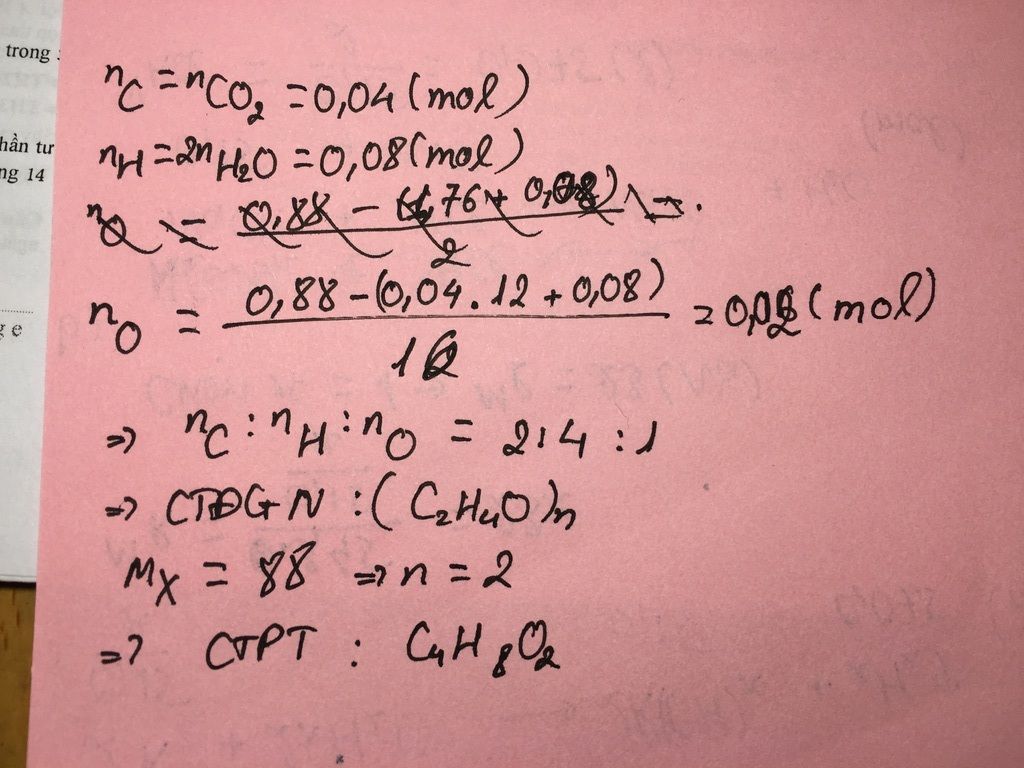 trong
hần tư
ng 14
g e
nC = nCO₂ = 0,04 (mol)
nH = 2nH₂O = 0,08 (mol)
nO = 0,88 - (1,76 + 0,08) / 2 =
nO = 0,88 - (0,04 . 12 + 0,08) / 16 = 0,02 (mol)
=> nC : nH : nO = 2 : 4 : 1
=> CTĐGN : (C₂H₄O)n
MX = 88 => n = 2
=> CTPT : C₄H₈O₂